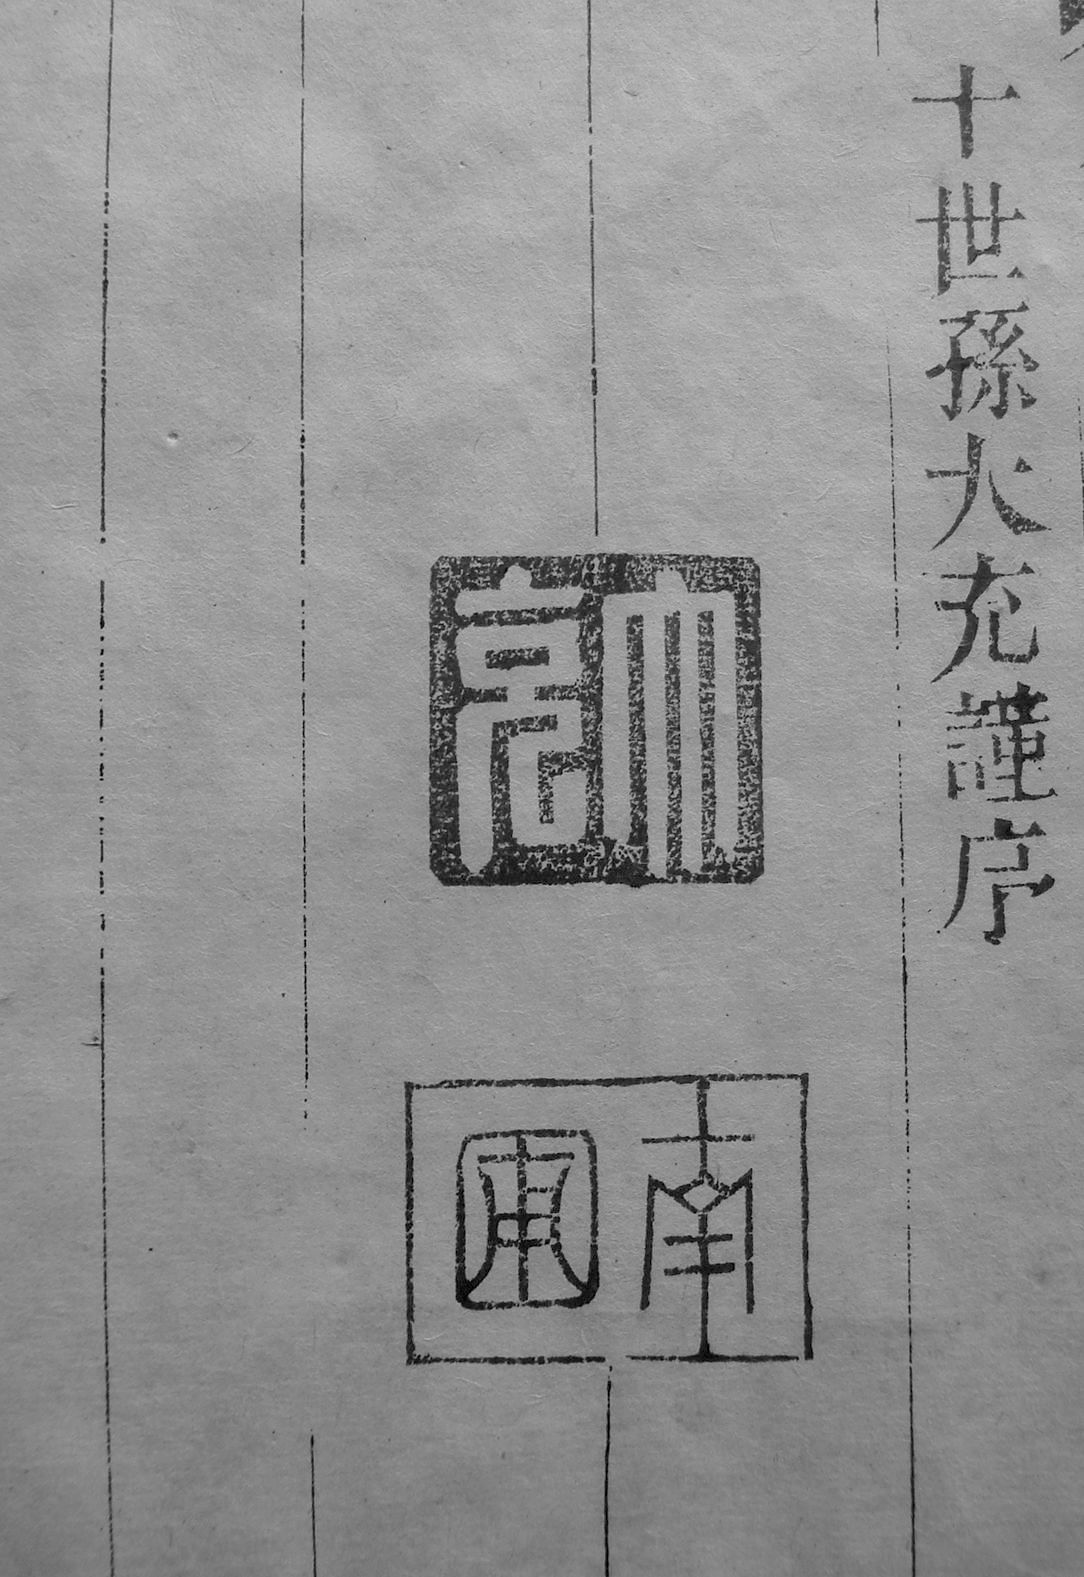 十世孫大充謹序
大
南圃